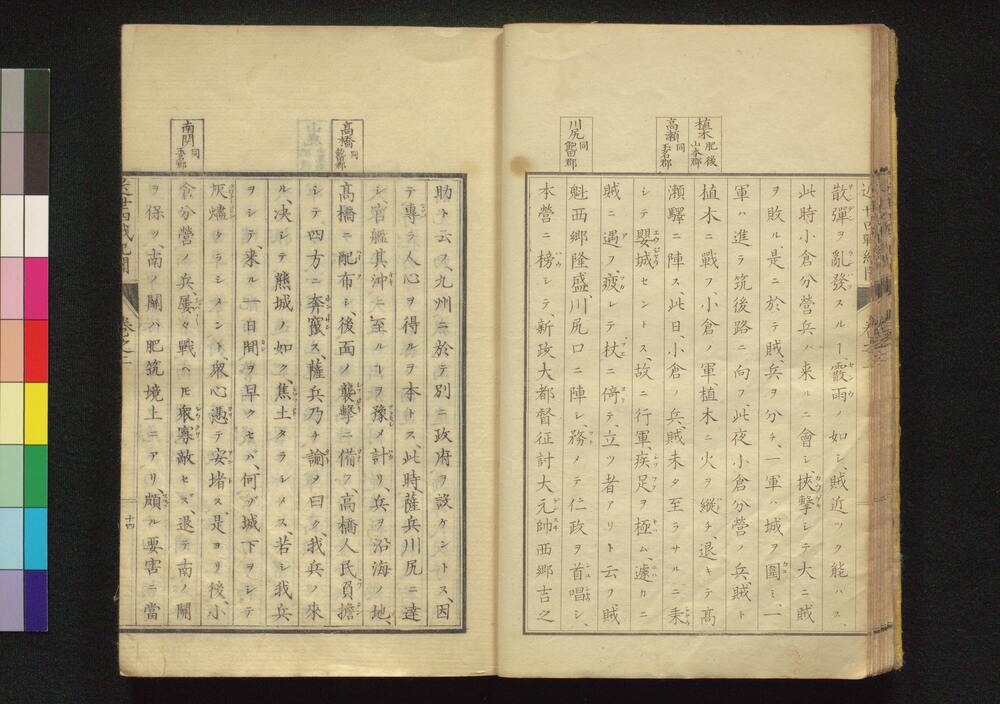 植木 肥後
山本郡
高瀬 同
玉名郡
川尻 同
飽田郡
散彈ヲ亂發スルヿ、霰雨ノ如シ、賊近ツク能ハス、
此時小倉分營兵ノ來ルニ會シ、挾擊シテ大ニ賊
ヲ敗ル、是ニ於テ賊、兵ヲ分チ、一軍ハ城ヲ圍ミ、一
軍ハ進ラ筑後路ニ向フ、此夜小倉分營ノ兵、賊ト
植木ニ戰フ、小倉ノ軍、植木ニ火ヲ縱チ、退キテ高
瀬驛ニ陣ス、此日、小倉ノ兵、賊未タ至ラサルニ乘
シテ嬰城セントス、故ニ行軍、疾足ヲ極ム、遽カニ
賊ニ遇フ、疲レテ杖ニ倚テ、立ツ者アリト云フ賊
魁西郷隆盛、川尻口ニ陣シ、務メテ仁政ヲ首唱シ、
本營ニ榜シテ、新政大都督征討大元帥西郷吉之
高橋 同
飽田郡
南関 同
玉名郡
助ト云フ、九州ニ於テ別ニ政府ヲ設ケントス、因
テ專ラ人心ヲ得ルヲ本トス、此時、薩兵川尻ニ達
シ、官艦其沖ニ至ルヿヲ豫メ計リ、兵ヲ沿海ノ地、
高橋ニ配布シ、後面ノ襲擊ニ備フ、高橋人民負擔
シテ四方ニ奔竄ス、薩兵乃チ諭ノ曰ク、我兵ノ來
ル、決シテ熊城ノ如ク、焦土タラシメス若シ我兵
ヲシテ、來ル一日間ヲ早クセバ、何ヅ城下ヲシテ
灰燼タラシメント、衆心憑テ安堵ス、是ヨリ後、小
倉分營ノ兵屢々戰ヘ𪜈衆寡敵セズ、退テ南ノ關
ヲ保ツ、南ノ關ハ肥筑境上ニアリ頗ル要害ニ當
卷之二
十四